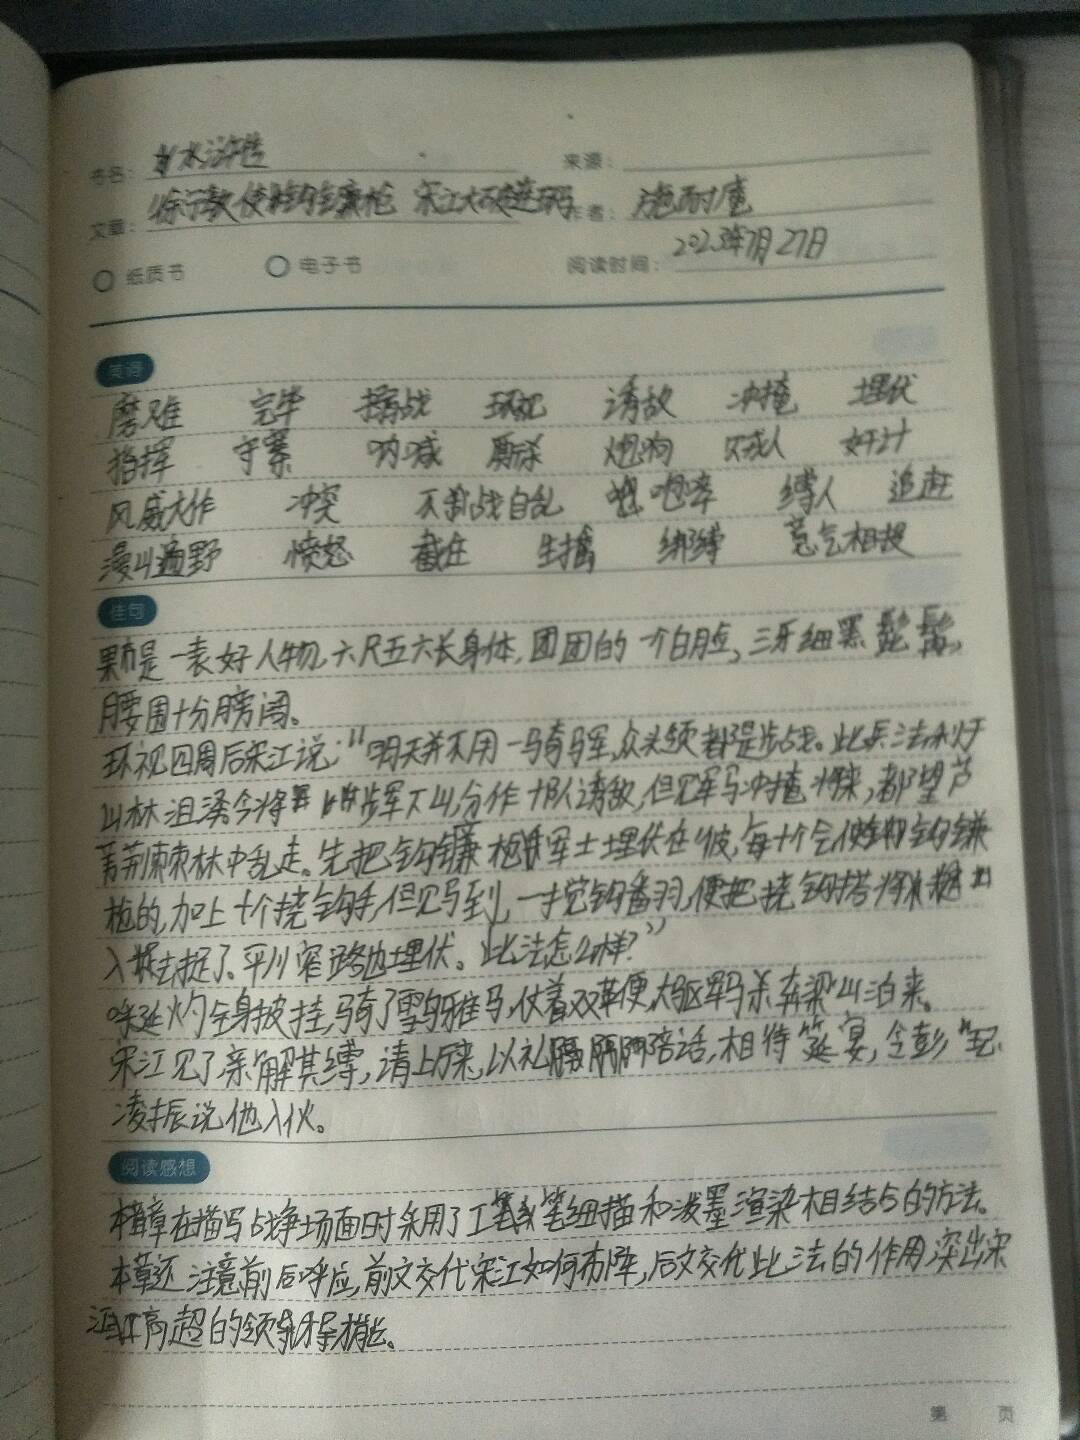 书名: 水浒传 来源:
文章: 徐宁教使钩镰枪 宋江大破连环马 作者: 施耐庵
纸质书 电子书 阅读时间: 2023年7月27日
美词
磨难 完毕 搦战 环视 诱敌 冲掩 埋伏
指挥 守寨 呐喊 厮杀 炮响 贼人 奸计
风威大作 冲突 不战自乱 咆哮 缚人 追赶
漫山遍野 愤怒 截住 生擒 绑缚 意气相投
佳句
果是一表好人物,六尺五六长身体,团团的一个白脸,三牙细黑髭髯,
腰围十分膀阔。
环视四周后宋江说:“明天并不用一骑马军,众头领都是步战。此兵法利于
山林沮泽今将步军下山,分作十队诱敌,但见军马冲掩将来,都望芦
苇荆棘林中乱走。先把钩镰枪军士埋伏在彼,每十个会使钩镰
枪的,加上十个挠钩手,但见马到,一搅钩翻,便把挠钩搭将
入去捉了。平川窄路也埋伏。此法怎么样?”
呼延灼全身披挂,骑了踢雪乌骓马,仗着双鞭,大驱军马杀奔梁山泊来。
宋江见了,亲解其缚,请上厅来,以礼陪话,相待筵宴,令彭玘、
凌振说他入伙。
阅读感想
本章在描写战争场面时采用了工笔细描和泼墨渲染相结合的方法。
本章还注意前后呼应,前文交代宋江如何布阵,后文交代此法的作用,突出宋
江高超的领导才能。
第 页